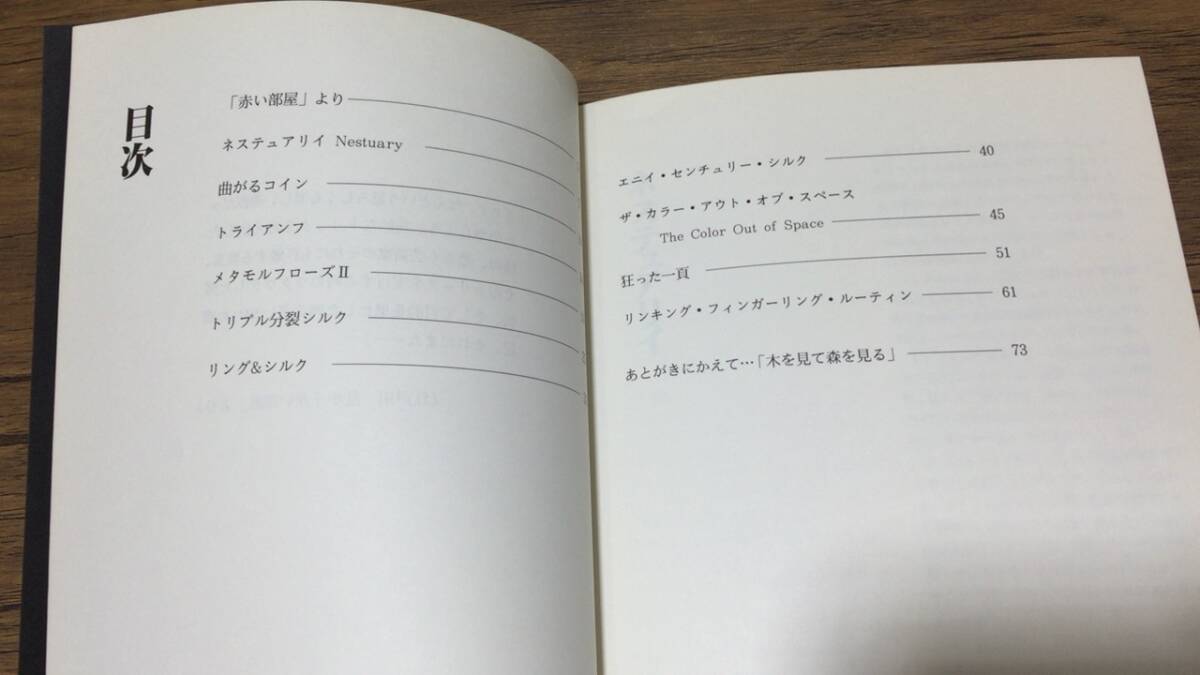 目次
「赤い部屋」より
ネステュアリイ Nestuary
曲がるコイン
トライアンフ
メタモルフローズⅡ
トリプル分裂シルク
リング&シルク
エニイ・センチュリー・シルク 40
ザ・カラー・アウト・オブ・スペース
The Color Out of Space 45
狂った一頁 51
リンキング・フィンガーリング・ルーティン 61
あとがきにかえて…「木を見て森を見る」 73